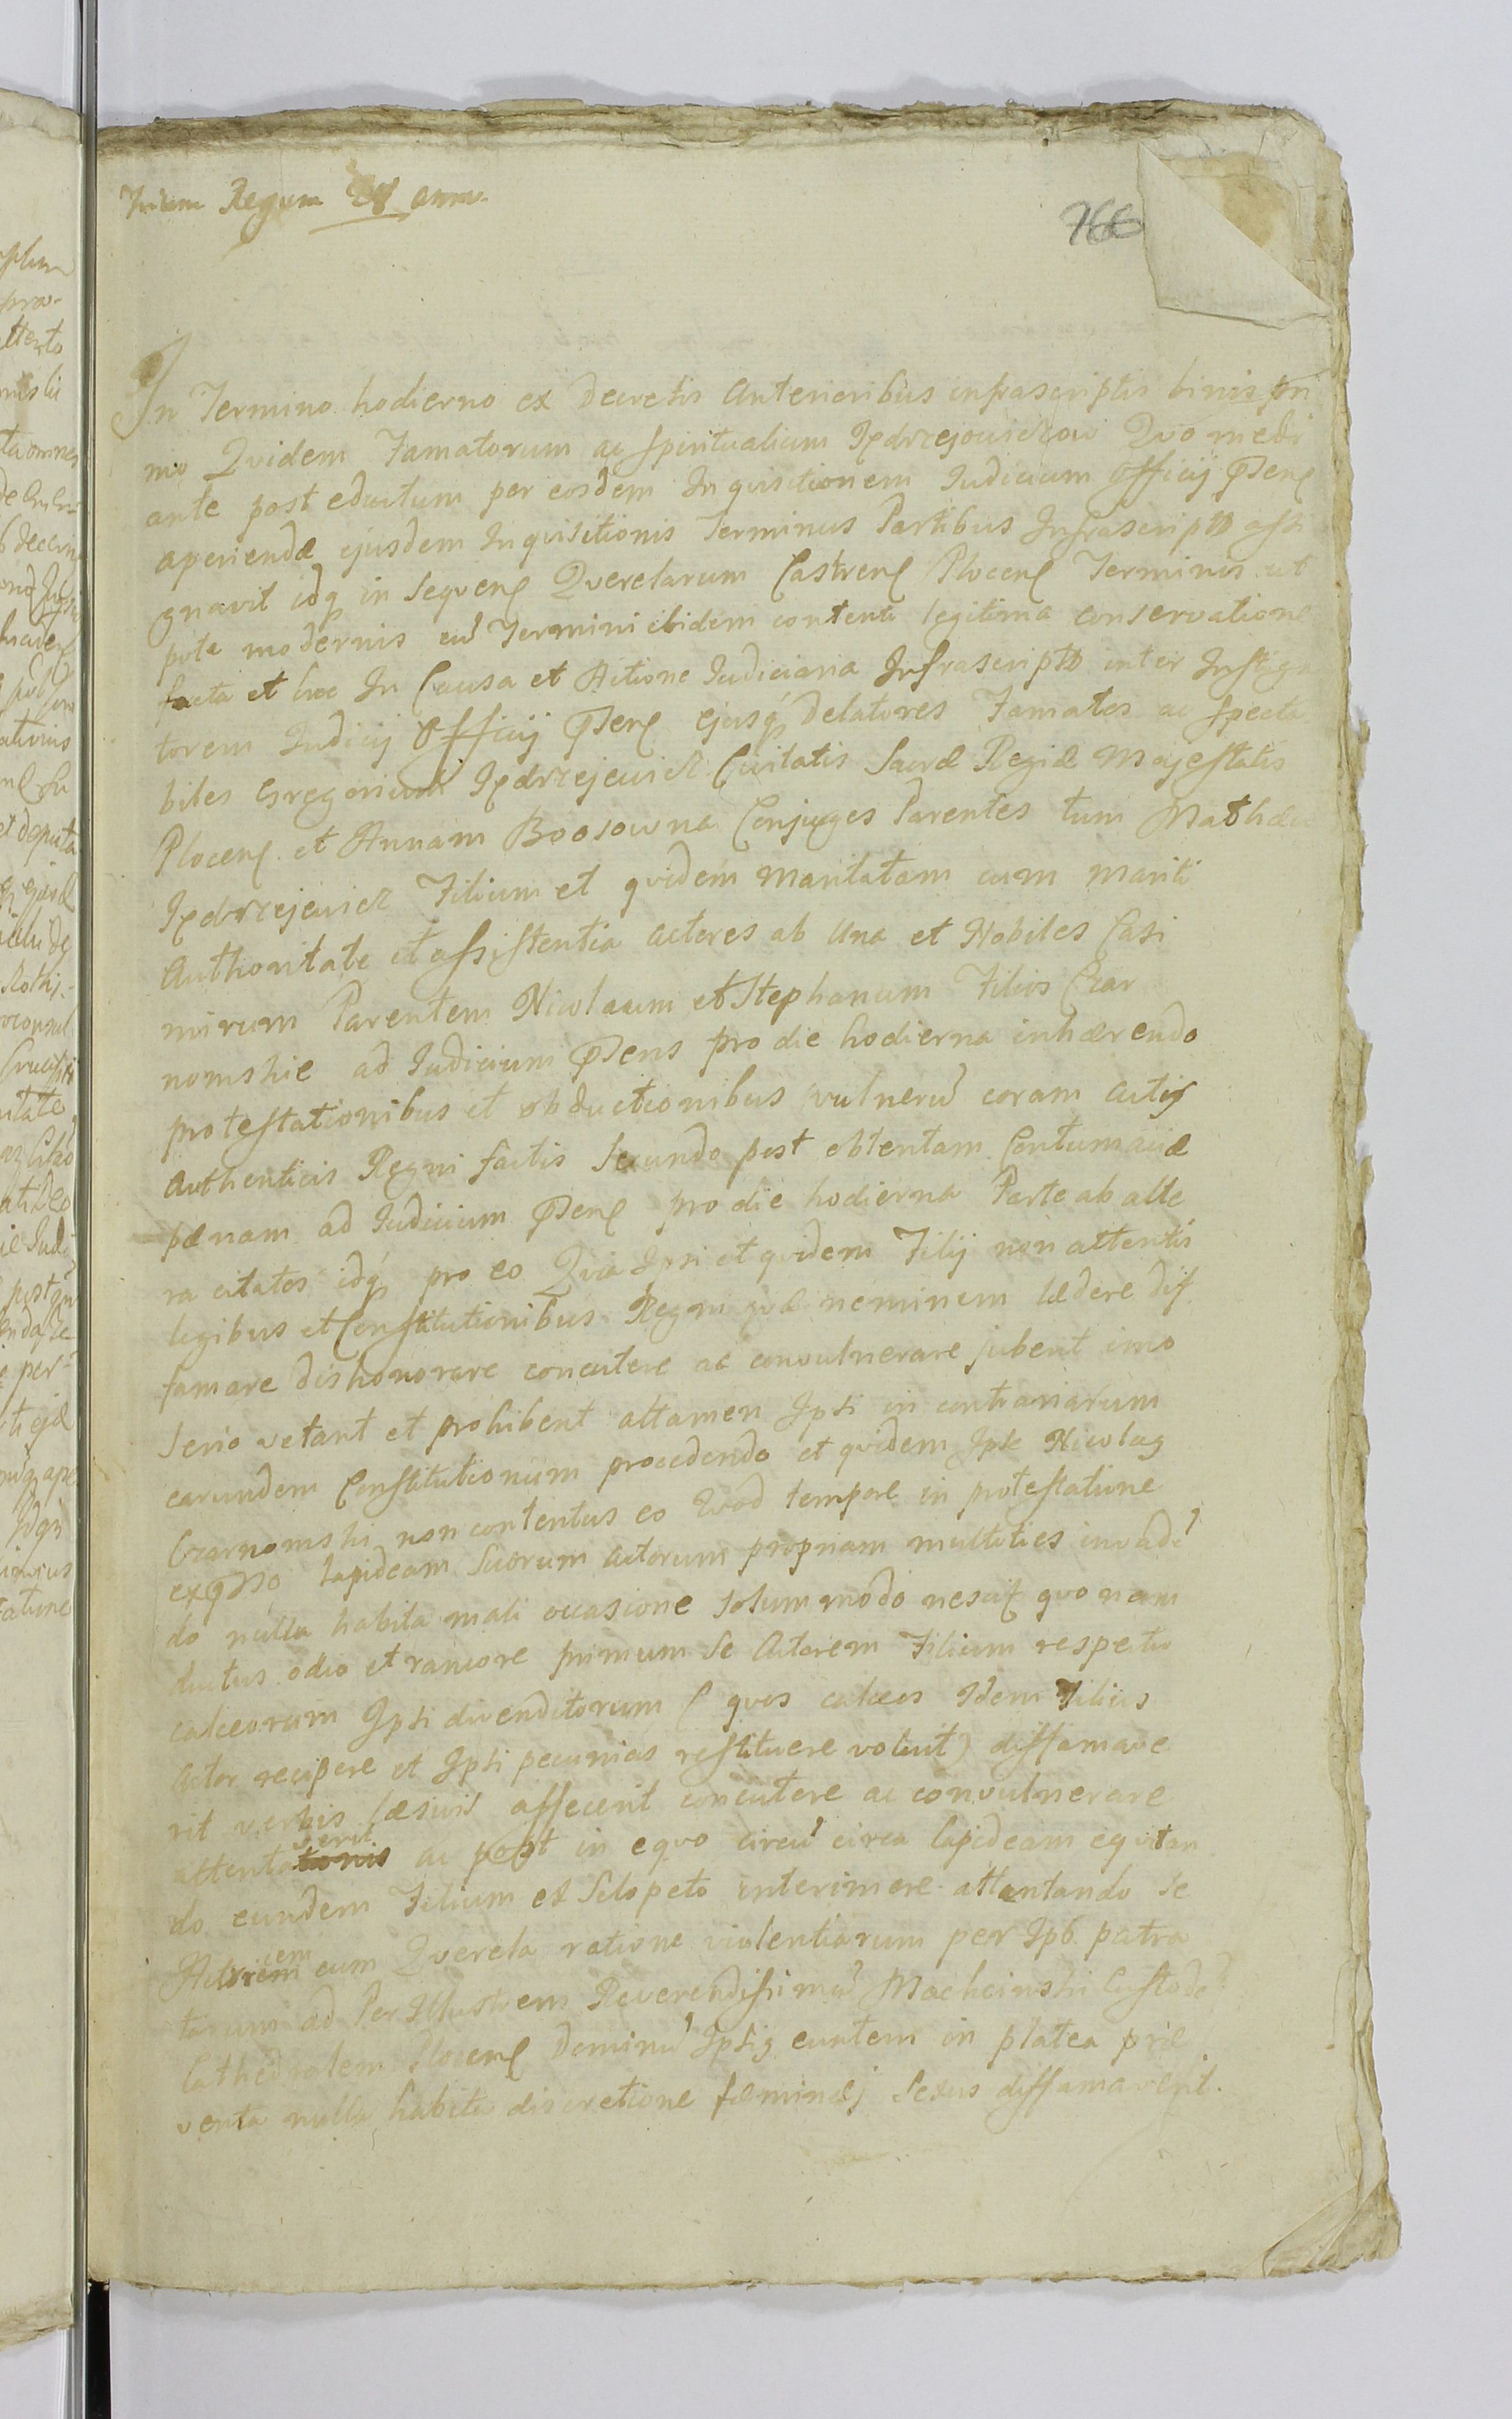 Trium Regum anno
766
In Termino hodierno ex Decretis Anterioribus infrascriptis binis pri
mo Qvidem Famatorum ac Spiritualium Jędrzejowiczow Qvo medi
ante post eductum per eosdem Inqvisitionem Judicium Officij
aperiendæ ejusdem Inqvisitionis Terminus Partibus Infrascript assi
gnavit idq in seqvenς Qverelarum Castrenς Plocenς Terminis ut
pote modernis Termini ibidem contenti legitima conservatione
facta et hoc In Causa et Actione Judiciaria Infrascript inter Instiga
torem Judicij Officij ejusq delatores Famatos ac Specta
biles Gregorium Jędrzejewicz Civitatis Sacræ Regiæ Majestatis
Plocenς et Annam Boosowna Conjuges Parentes tum Mathæu
Jędrzejewicz Filium et qvidem Maritatam cum mariti
Authoritate et assistentia actores ab una et Nobiles Casi
mirum Parentem Nicolaum et Stephanum Filios Czar
nomskie ad Judicium pro die hodierna inhærendo
protestationibus et obductionibus vulneru coram actis
Authenticis Regni factis secundo post obtentam Contumaciæ
pænam ad Judicium pro die hodierna Parte ab alte
ra citatos idq pro eo Qvia Ipsi et qvidem Filij non attentis
legibus et Constitutionibus Regni qvæ neminem lædere dif
famare dishonorare concutere ac convulnerare jubent imo
serio vetant et prohibent attamen Ipsi in contrarium
earundem Constitutionum procedendo et qvidem Ipse Nicolaς
Czarnomski non contentus eo Qvod tempore in protestatione
lapideam suorum actorum propriam multoties invade
do nulla habita mali occasione solummodo nescit qvonam
ductus odio et rancore primum se Actorem Filium respectu
calceorum Ipsi divenditorum ( qvos calceos Idem Filius
Actor recipere et Ipsi pecunias restituere voluit) diffamave
rit verbis læsivis affecerit concutere ac convulnerare
attentaverit ac post in eqvo circu circa lapideam eqvitan
do eundem Filium ex Sclopeto interimere attentando se
Actricem cum Qverela ratione violentiarum per Ips patra
tarum ad Per Illustrem Reverendissimu Machcinski Custode
Cathedralem Plocenς Dominu Ipsiς euntem in platea præ
venta nulla habita discretione fæminej Sexus diffamaverit.